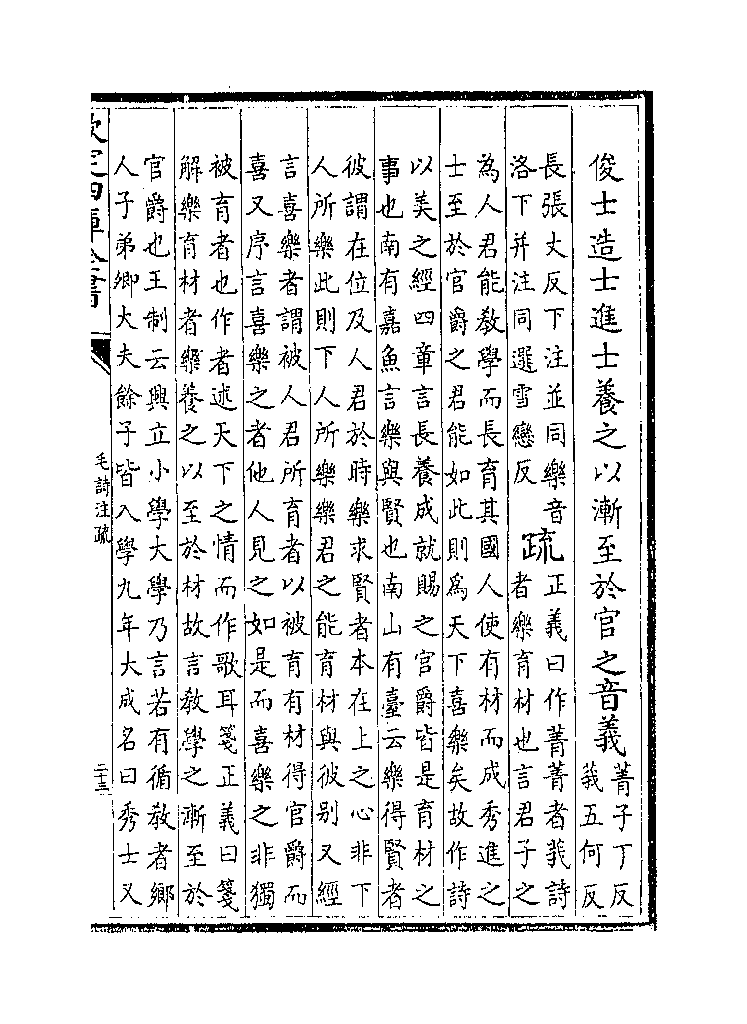 俊士造士進士養之以漸至於官之音義
菁子丁反
莪五何反
長張丈反下注並同樂音
洛下并注同選雪戀反
疏
正義曰作菁菁者莪詩
者樂育材也言君子之
為人君能教學而長育其國人使有材而成秀進之
士至於官爵之君能如此則為天下喜樂矣故作詩
以美之經四章言長養成就賜之官爵皆是育材之
事也南有嘉魚言樂與賢也南山有臺云樂得賢者
彼謂在位及人君於時樂求賢者本在上之心非下
人所樂此則下人所樂樂君之能育材與彼别又經
言喜樂者謂被人君所育者以被育有材得官爵而
喜又序言喜樂之者他人見之如是而喜樂之非獨
被育者也作者述天下之情而作歌耳箋正義曰箋
解樂育材者樂養之以至於材故言教學之漸至於
官爵也王制云興立小學大學乃言若有循教者鄉
人子弟卿大夫餘子皆入學九年大成名曰秀士又
欽定四庫全書
毛詩注疏
二十三